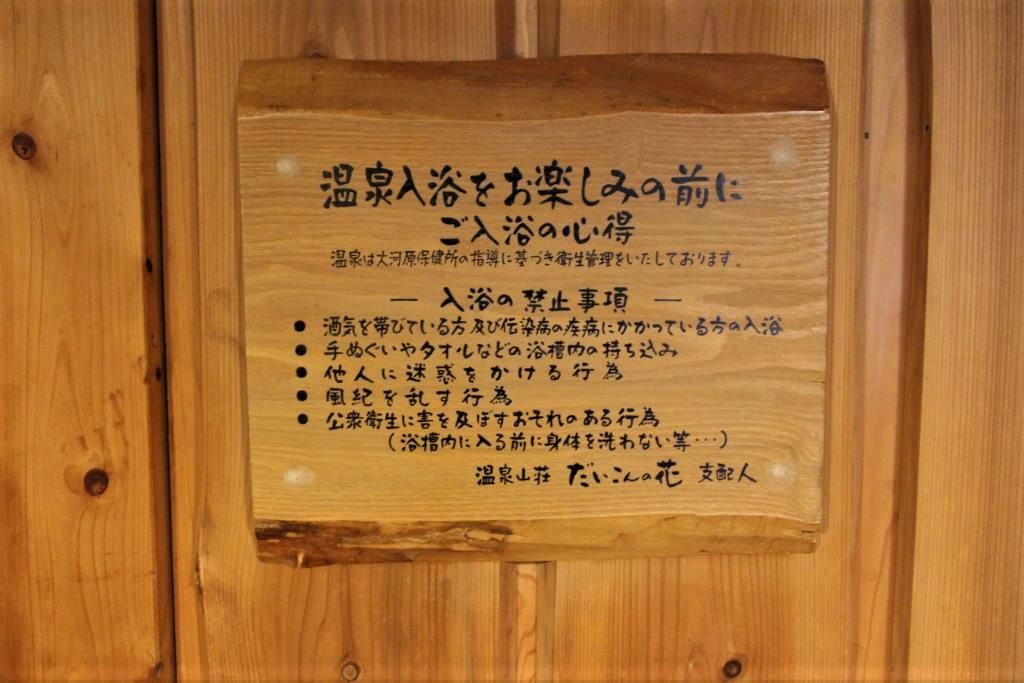 温泉入浴をお楽しみの前に
ご入浴の心得
温泉は大河原保健所の指導に基づき衛生管理をいたしております。
― 入浴の禁止事項 ―
● 酒気を帯びている方及び伝染病の疾病にかかっている方の入浴
● 手ぬぐいやタオルなどの浴槽内の持ち込み
● 他人に迷惑をかける行為
● 風紀を乱す行為
● 公衆衛生に害を及ぼすおそれのある行為
(浴槽内に入る前に身体を洗わない等…)
温泉山荘 だいこんの花 支配人